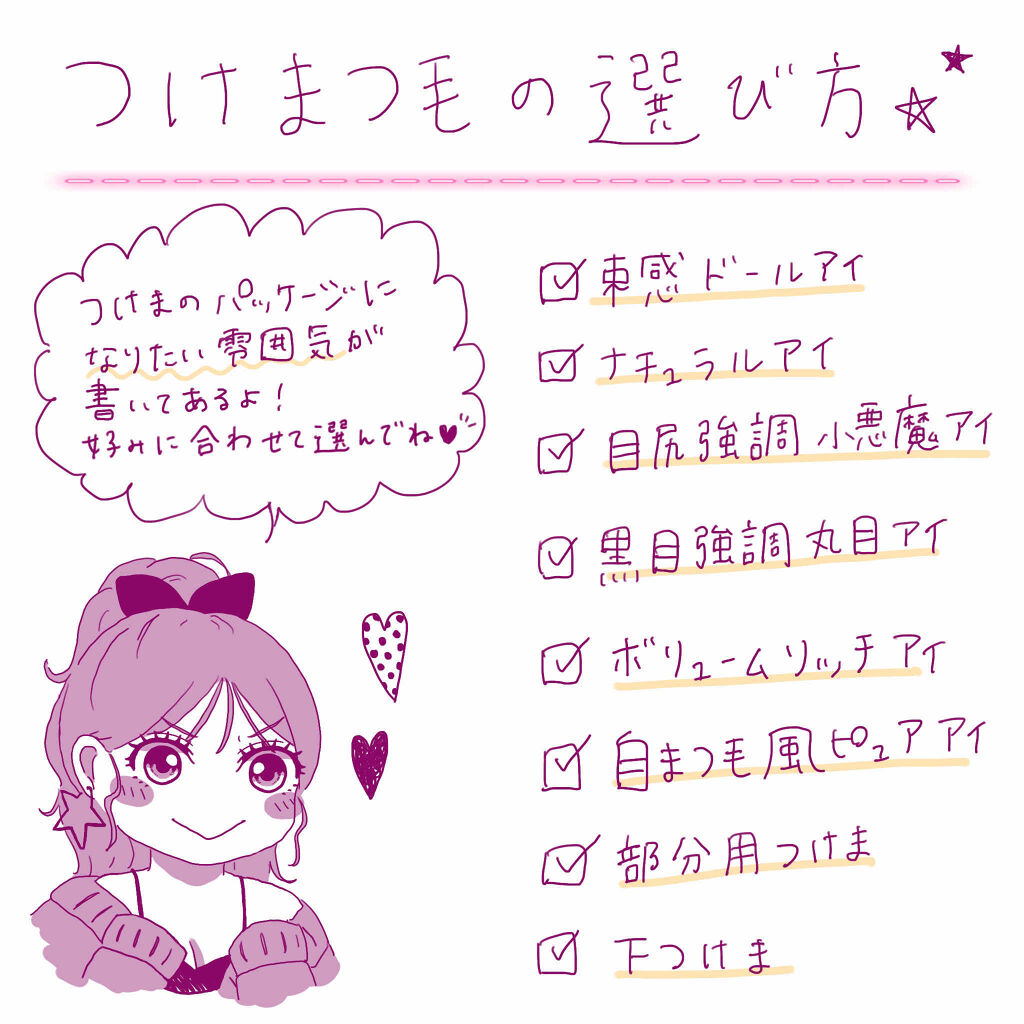 つけまつ毛の選び方
つけまのパッケージに
なりたい雰囲気が
書いてあるよ!
好みに合わせて選んでね
束感ドールアイ
ナチュラルアイ
目尻強調 小悪魔アイ
黒目強調 丸目アイ
ボリュームリッチアイ
自まつ毛風ピュアアイ
部分用つけま
下つけま